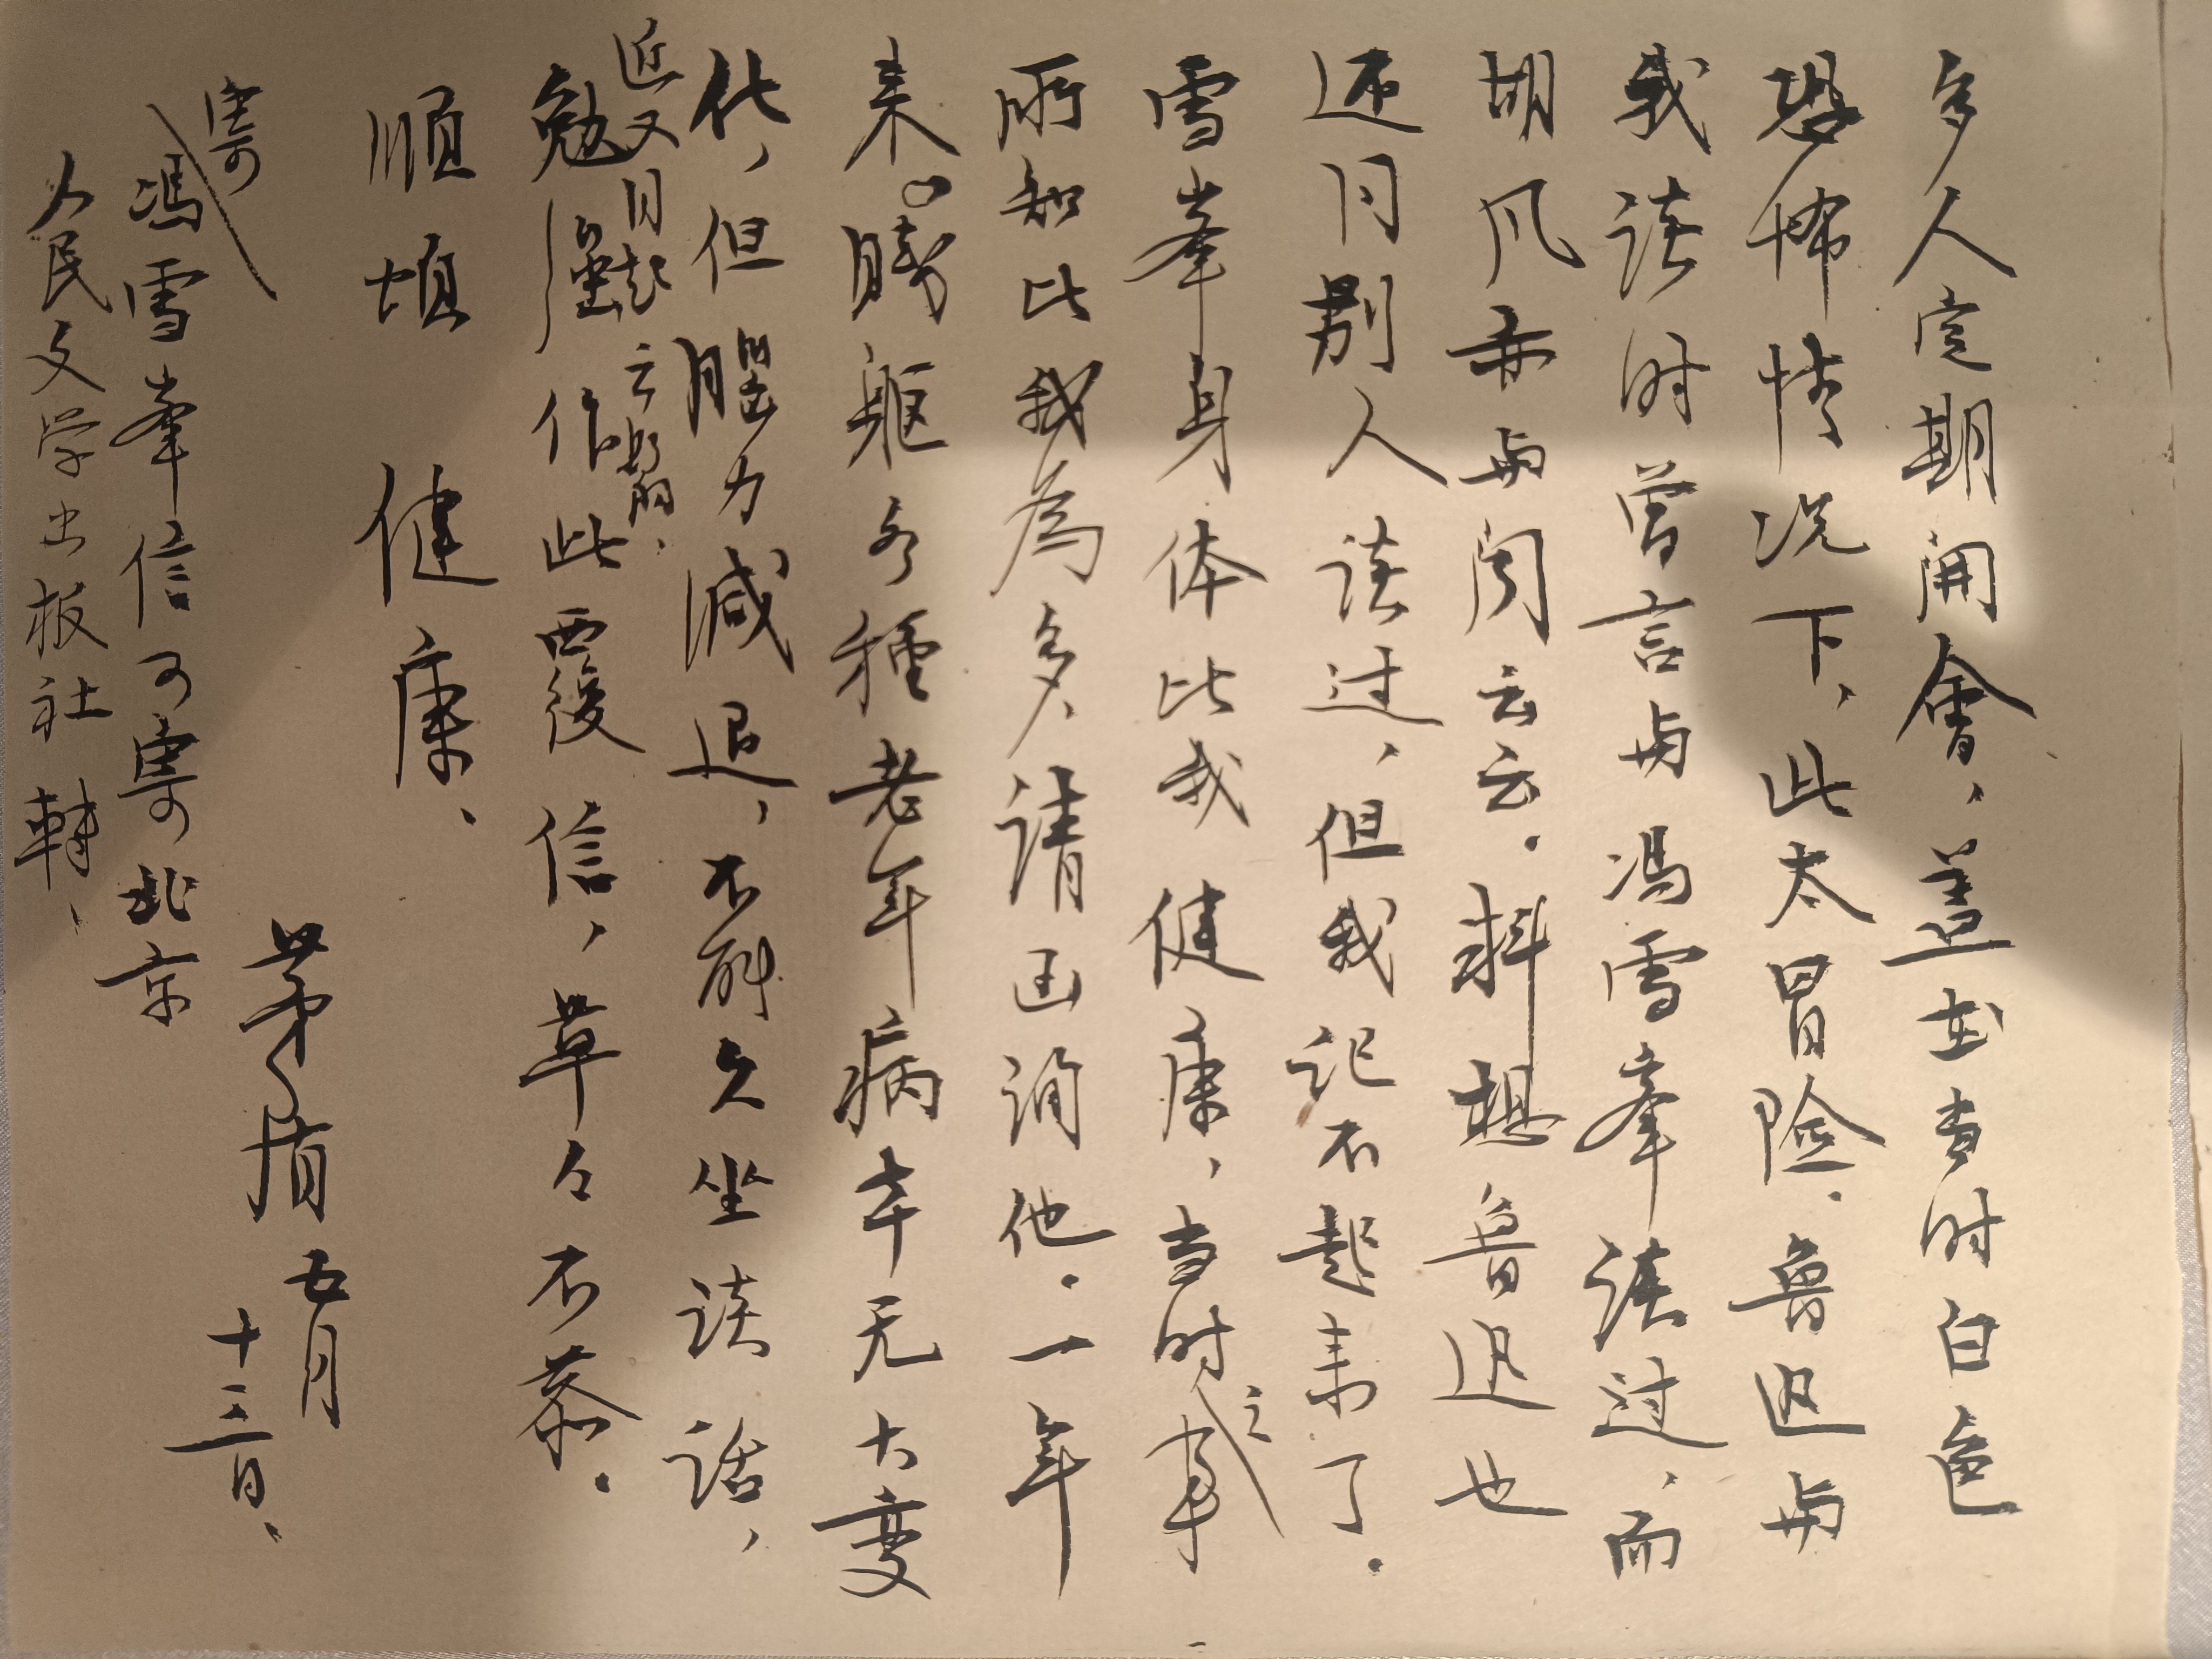 多人定期開會，盖在当时白色
恐怖情况下，此太冒险．鲁迅与
我谈时曾言与冯雪峯谈过，而
胡风亦与闻云云．料想鲁迅也
还同别人谈过，但我记不起来了．
雪峯身体比我健康，当时之事
所知比我為多，请函询他．一年
来，賤躯各種老年病幸无大变
化，但腦力减退，不能久坐谈话，
近又目起云翳，
勉强作此覆信，草々不恭．
顺颂 健康．
茅盾 五月
十三日．
寄
冯雪峯信可寄北京
人民文学出板社转．